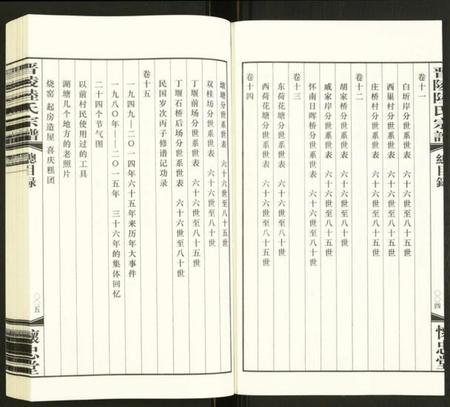 晋陵陆氏宗谱
總目录
〇〇四
懷忠堂
卷十一
白圻岸分世系世表 六十六世至八十五世
西堰村分世系世表 六十六世至八十五世
庄桥村分世系世表 六十六世至八十世
卷十二
胡家桥分世系世表 六十六世至八十世
戚家岸分世系世表 六十六世至八十五世
怀南日晖桥分世系世表 六十六世至八十世
卷十三
东荷花塘分世系世表 六十六世至八十世
西荷花塘分世系世表 六十六世至八十五世
卷十四
塘塘分世系世表 六十六世至八十五世
双桂坊分世系世表 六十六世至八十世
丁堰前场分世系世表 六十六世至八十五世
丁堰石桥后场分世系世表 六十六世至八十世
民国岁次丙子修谱记功录
卷十五
一九四九-二〇一四年六十五年来历年大事件
一九八〇年-二〇一五年 三十六年的集体回忆
二十四个节气图
以前村民使用过的工具
溷塘几个地方的老照片
烧窑 起房造屋 喜庆糕团
晋陵陆氏宗譜
總目録
〇〇五
懷忠堂